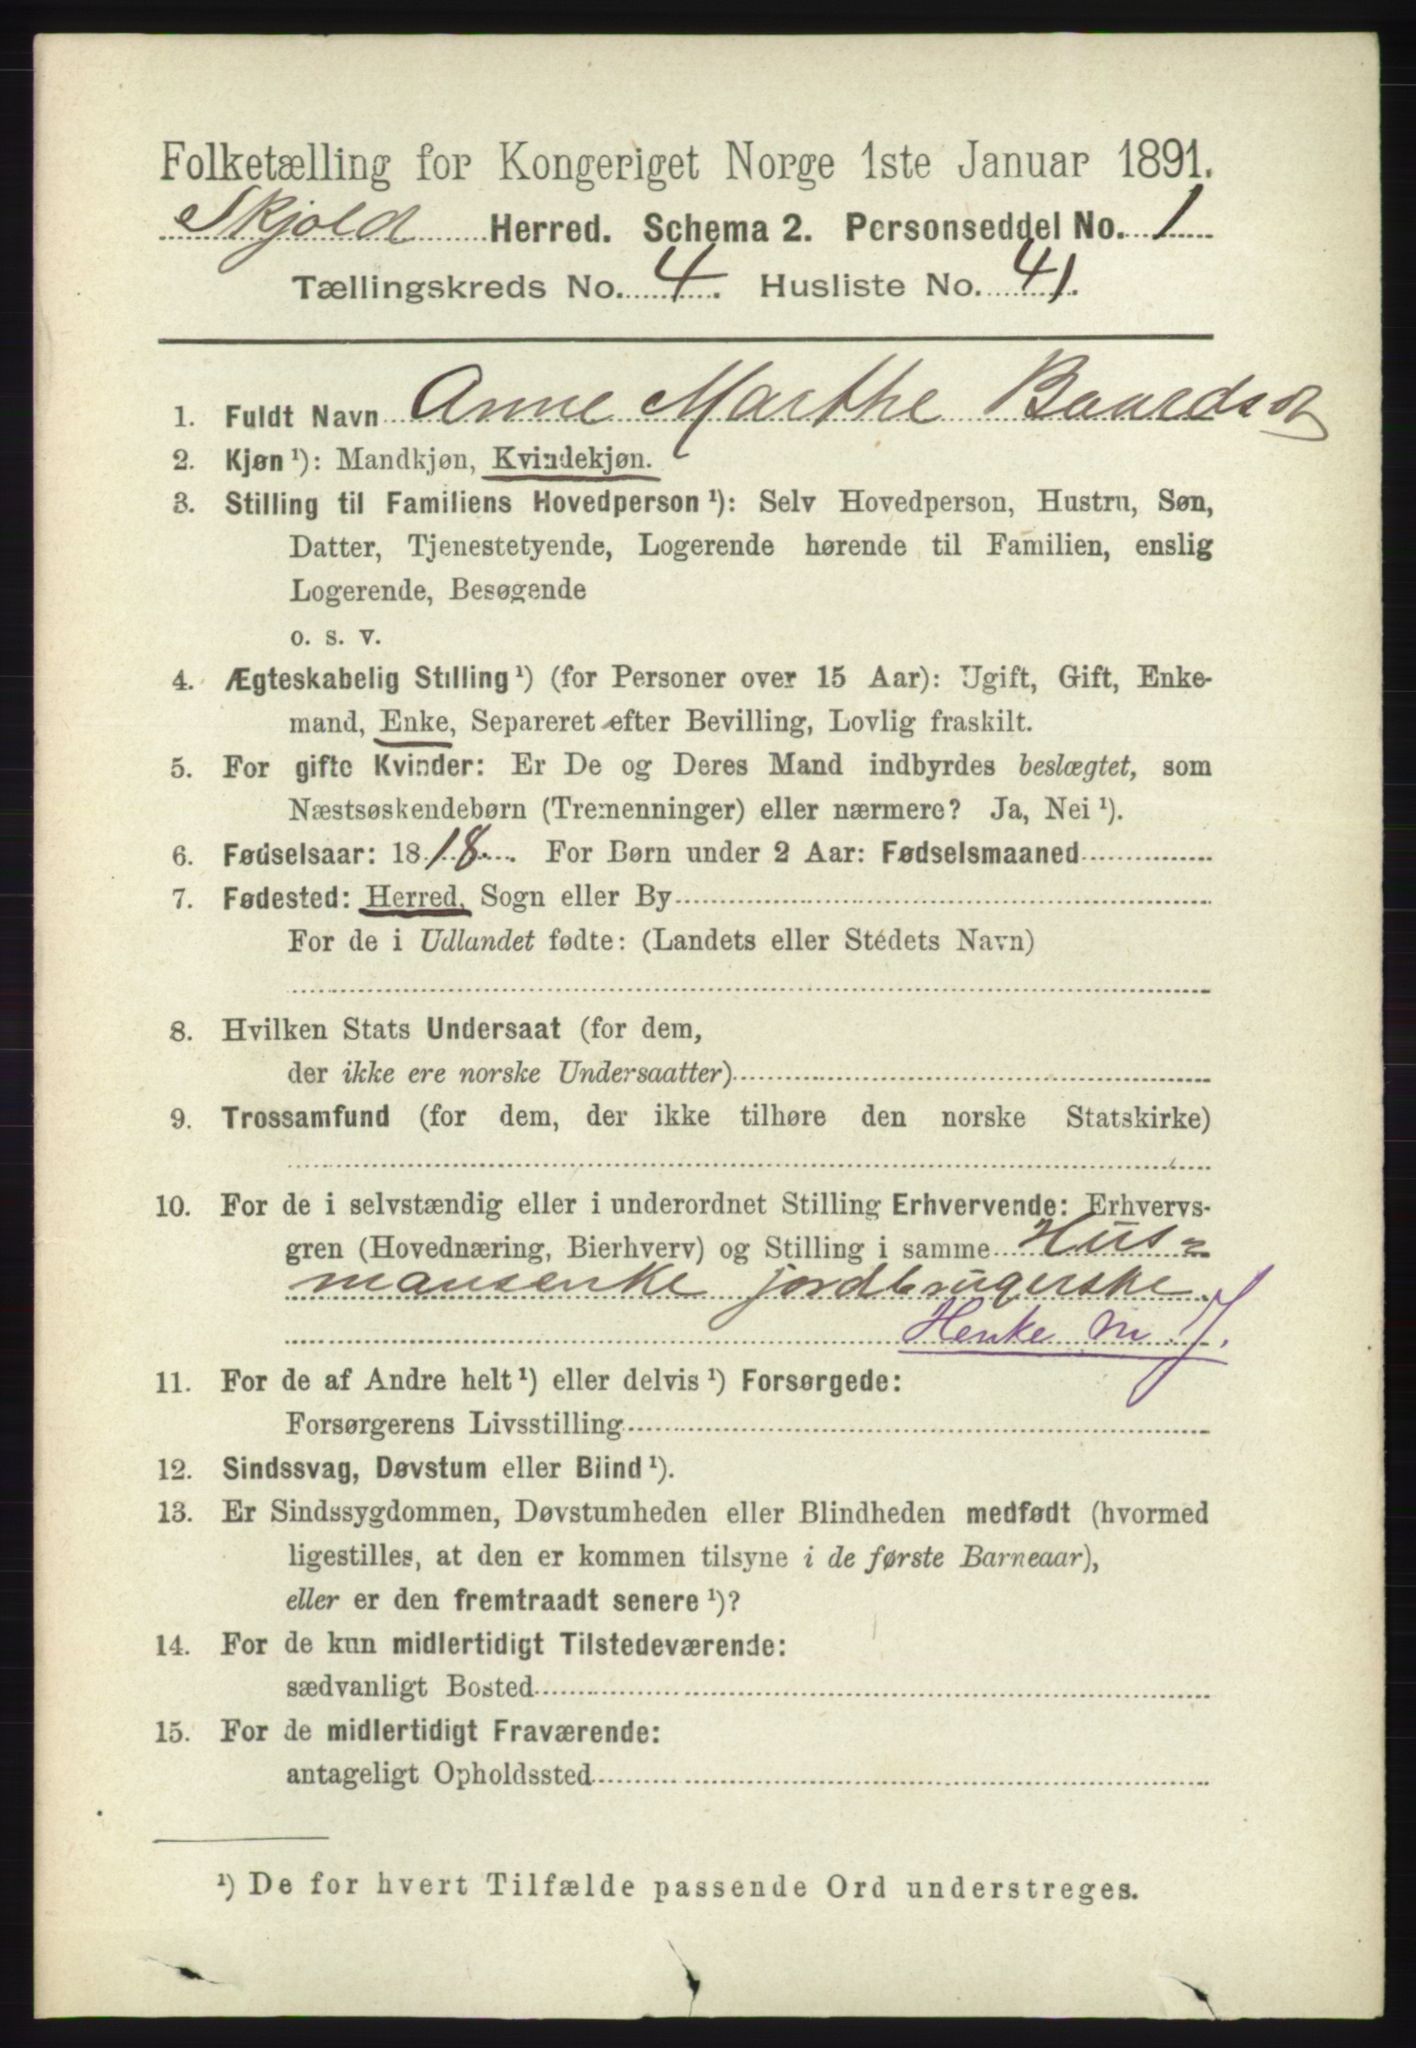 Folketælling for Kongeriget Norge 1ste Januar 1891.
Skjold Herred. Schema 2. Personseddel No. 1
Tællingskreds No. 4. Husliste No. 41.
1. Fuldt Navn Anne Marthe Baardsdt
2. Kjøn ¹): Mandkjøn, Kvindekjøn.
3. Stilling til Familiens Hovedperson ¹): Selv Hovedperson, Hustru, Søn,
Datter, Tjenestetyende, Logerende hørende til Familien, enslig
Logerende, Besøgende
o. s. v.
4. Ægteskabelig Stilling ¹) (for Personer over 15 Aar): Ugift, Gift, Enke-
mand, Enke, Separeret efter Bevilling, Lovlig fraskilt.
5. For gifte Kvinder: Er De og Deres Mand indbyrdes beslægtet, som
Næstsøskendebørn (Tremenninger) eller nærmere? Ja, Nei ¹).
6. Fødselsaar: 1818. For Børn under 2 Aar: Fødselsmaaned
7. Fødested: Herred, Sogn eller By
For de i Udlandet fødte: (Landets eller Stedets Navn)
8. Hvilken Stats Undersaat (for dem,
der ikke ere norske Undersaatter)
9. Trossamfund (for dem, der ikke tilhøre den norske Statskirke)
10. For de i selvstændig eller i underordnet Stilling Erhvervende: Erhvervs-
gren (Hovednæring, Bierhverv) og Stilling i samme Hus=
mansenke jordbrugerske
Henke m. J.
11. For de af Andre helt ¹) eller delvis ¹) Forsørgede:
Forsørgerens Livsstilling
12. Sindssvag, Døvstum eller Blind ¹).
13. Er Sindssygdommen, Døvstumheden eller Blindheden medfødt (hvormed
ligestilles, at den er kommen tilsyne i de første Barneaar),
eller er den fremtraadt senere ¹)?
14. For de kun midlertidigt Tilstedeværende:
sædvanligt Bosted
15. For de midlertidigt Fraværende:
antageligt Opholdssted
¹) De for hvert Tilfælde passende Ord understreges.